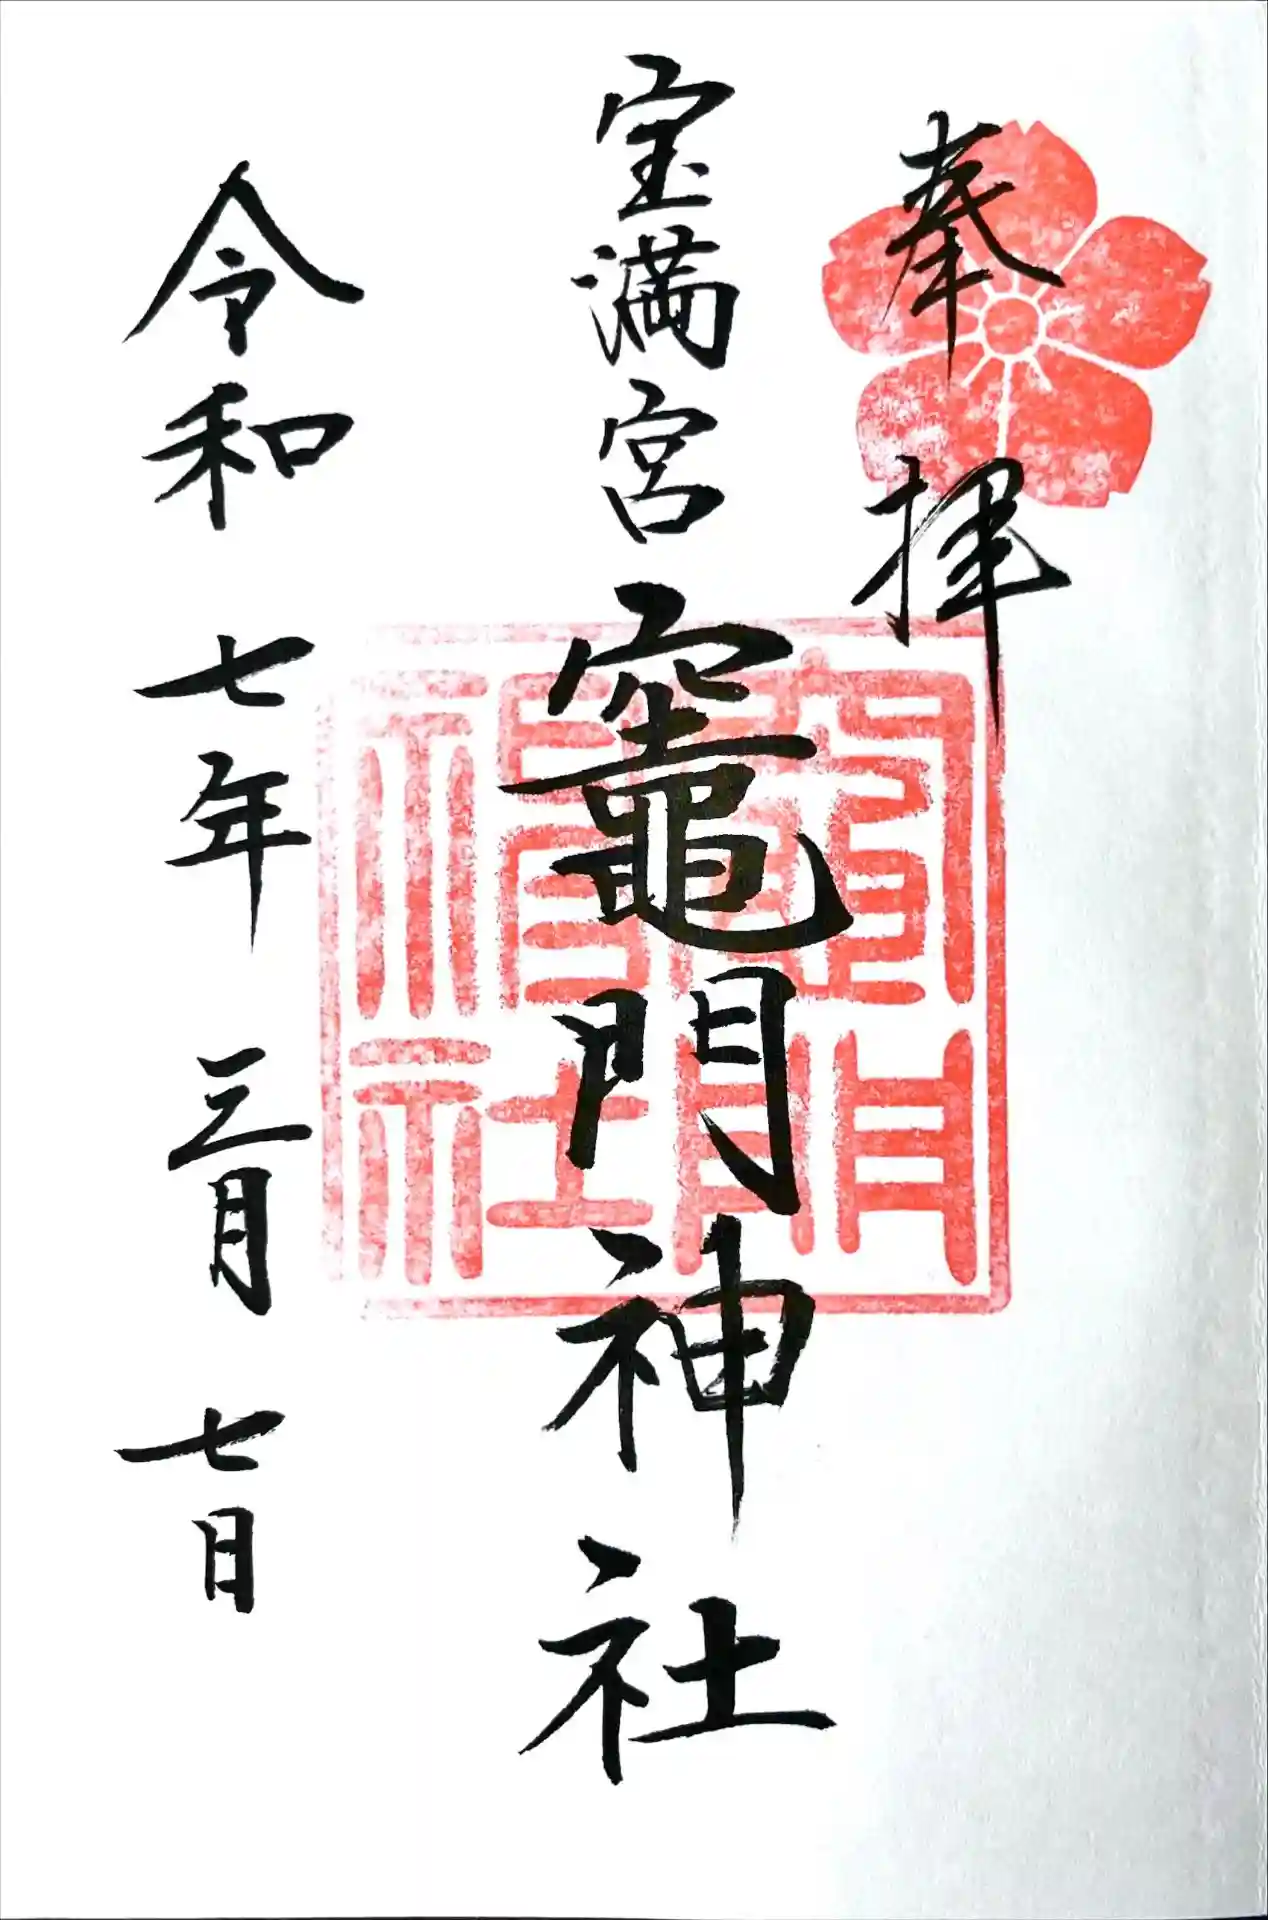 奉拝
宝満宮竈門神社
竈門神社
令和七年三月七日